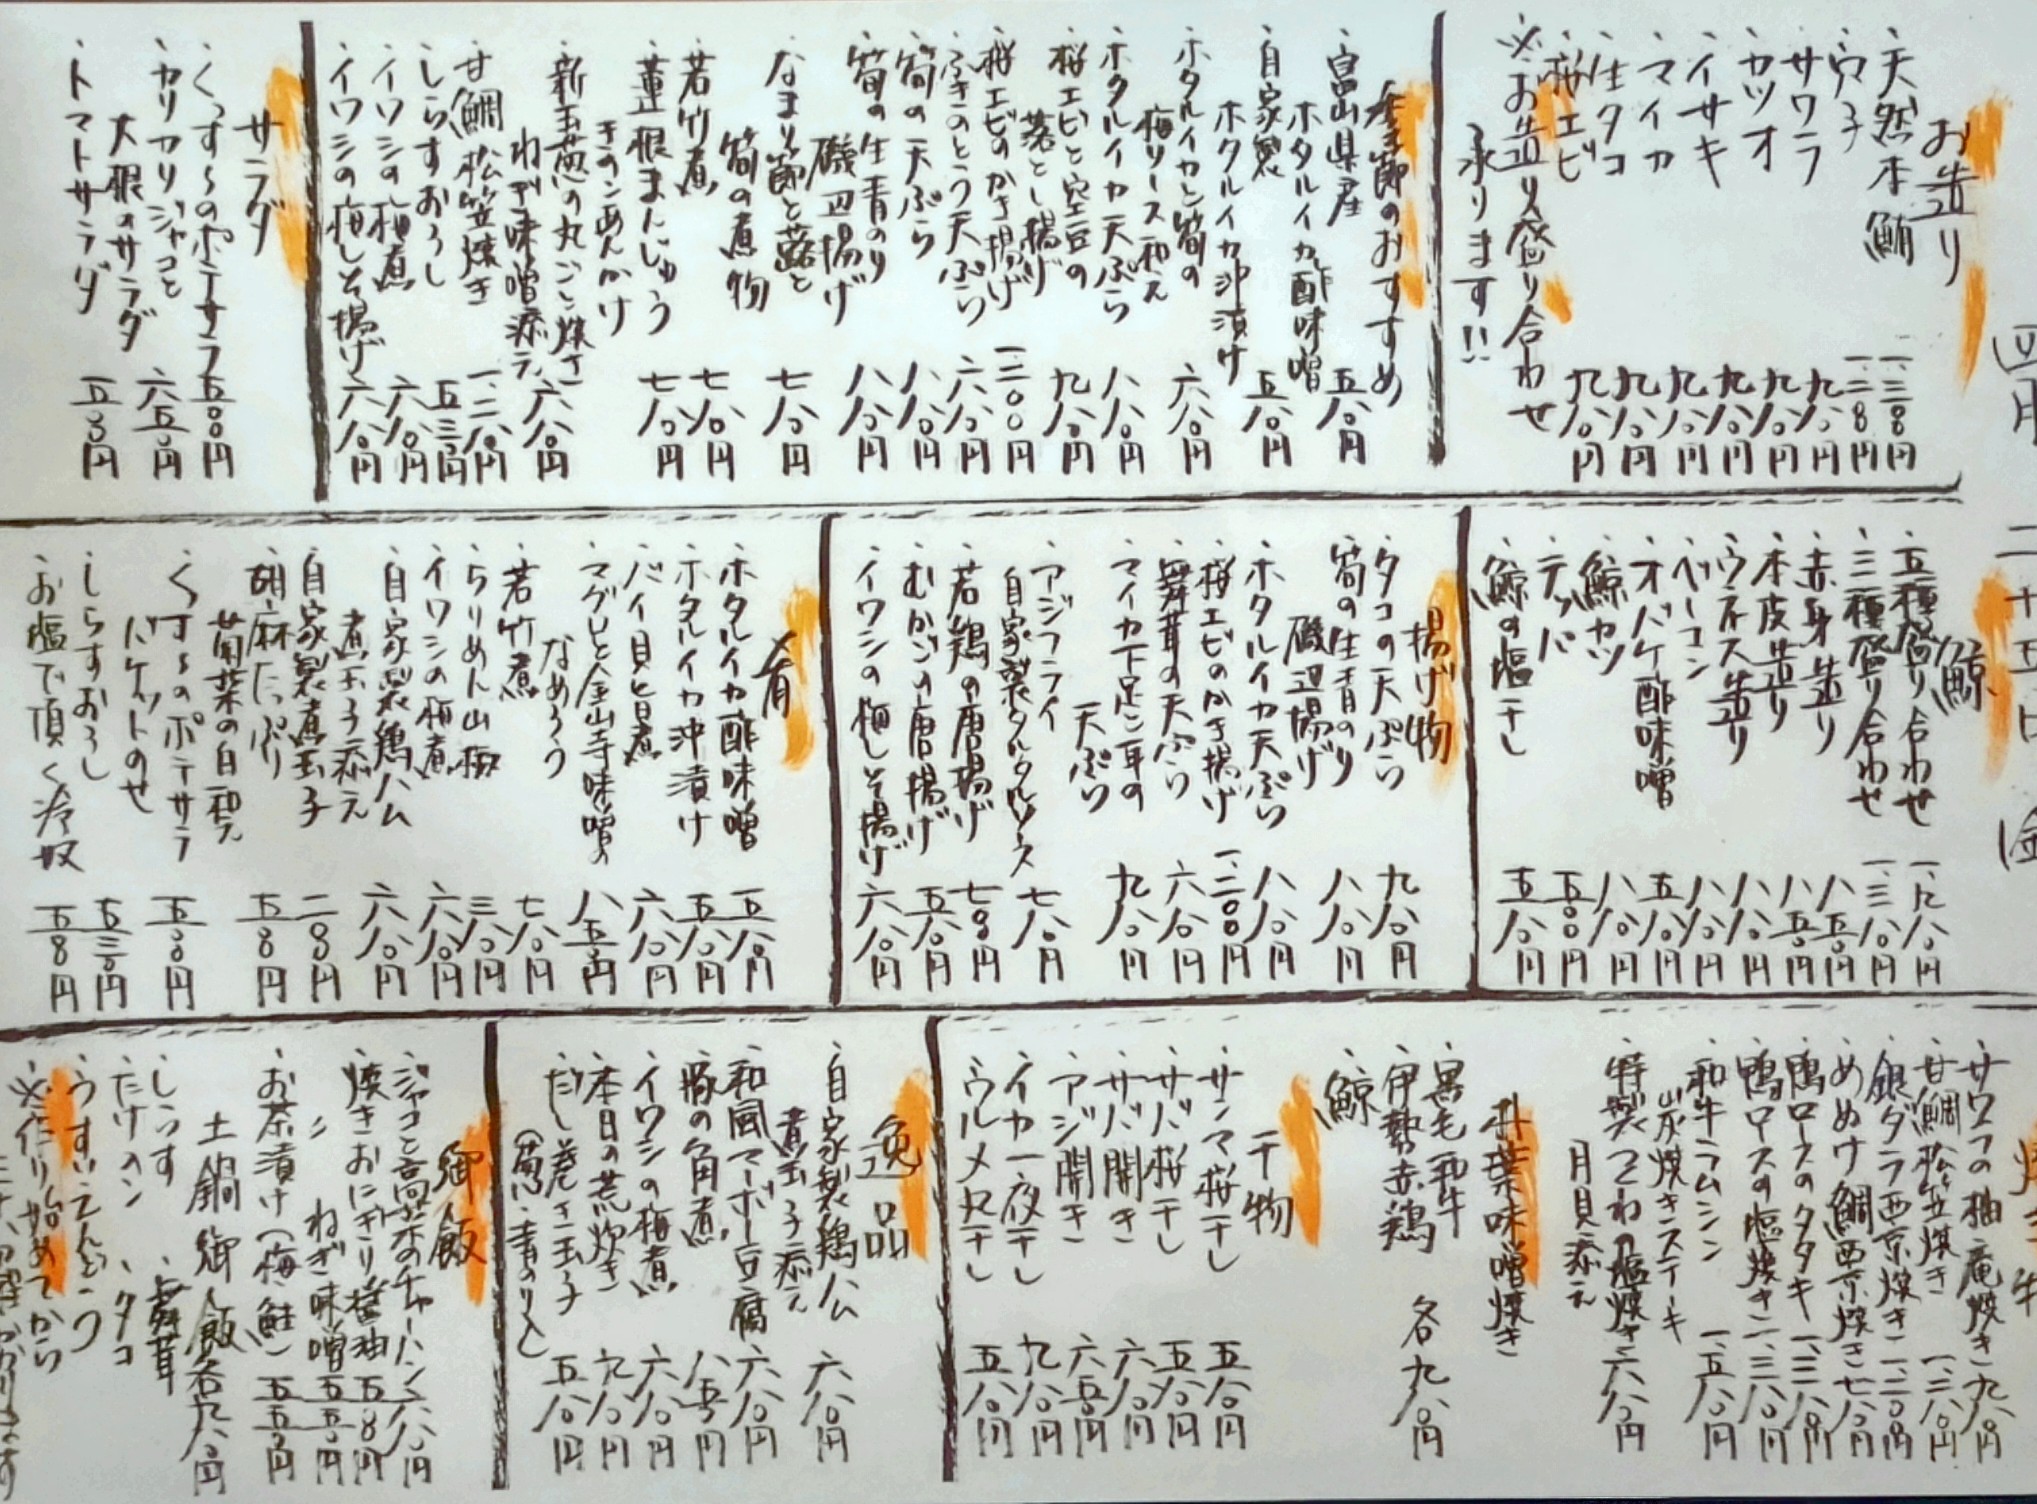 四月 二十五日 金
お造り
・天然本鮪 一、三〇〇円
・穴子 一、二〇〇円
・サワラ 九八〇円
・カツオ 九八〇円
・イサキ 九八〇円
・マイカ 九八〇円
・生タコ 九八〇円
・桜エビ 九八〇円
※お造り盛り合わせ
承ります!!
季節のおすすめ
・富山県産
ホタルイカ酢味噌 五八〇円
・自家製
ホタルイカ沖漬け 五八〇円
・ホタルイカと筍の
梅ソース和え 六八〇円
・ホタルイカ天ぷら 八八〇円
・桜エビと空豆の
落とし揚げ 九八〇円
・桜エビのかき揚げ 一、二〇〇円
・ふきのとう天ぷら 六八〇円
・筍の天ぷら 八八〇円
・筍の生青のり
磯辺揚げ 八八〇円
・なまり節と蕗と
筍の煮物 七八〇円
・若竹煮 七八〇円
・蓮根まんじゅう
きのこあんかけ 七八〇円
・新玉葱の丸ごと焼き
ねぎ味噌添え 六八〇円
・甘鯛松笠焼き 一、二八〇円
・しらすおろし 五三〇円
・イワシの梅煮 六八〇円
・イワシの梅しそ揚げ 六八〇円
サラダ
・くっす〜のポテサラ 五〇〇円
・カリカリジャコと
大根のサラダ 六五〇円
・トマトサラダ 五五〇円
鯨
・五種盛り合わせ 一、九八〇円
・三種盛り合わせ 一、三八〇円
・赤身造り 八五〇円
・本皮造り 八五〇円
・ウネス造り 八八〇円
・ベーコン 八八〇円
・オバケ酢味噌 五八〇円
・鯨カツ 八八〇円
・テッパ 五五〇円
・鯨の塩干し 五八〇円
揚げ物
・タコの天ぷら 九八〇円
・筍の生青のり
磯辺揚げ 八八〇円
・ホタルイカ天ぷら 八八〇円
・桜エビのかき揚げ 一、二〇〇円
・舞茸の天ぷら 六八〇円
・マイカ下足と耳の
天ぷら 九八〇円
・アジフライ
自家製タルタルソース 七八〇円
・若鶏の唐揚げ 七〇〇円
・むかごの唐揚げ 五八〇円
・イワシの梅しそ揚げ 六八〇円
肴
・ホタルイカ酢味噌 五八〇円
・ホタルイカ沖漬け 五八〇円
・バイ貝旨煮 六八〇円
・マグロと金山寺味噌の
なめろう 八五〇円
・若竹煮 七八〇円
・ちりめん山椒 三八〇円
・イワシの梅煮 六八〇円
・自家製鶏ハム
煮玉子添え 六八〇円
・自家製煮玉子 二〇〇円
・胡麻たっぷり
菊菜の白和え 五五〇円
・くす〜のポテサラ
バケットのせ 五五〇円
・しらすおろし 五三〇円
・お塩で頂く冷奴 五五〇円
焼き物
・サワラの柚庵焼き 九八〇円
・甘鯛松笠焼き 一、二八〇円
・銀ダラ西京焼き 一、二〇〇円
・めぬけ鯛西京焼き 一、七八〇円
・鴨ロースのタタキ 一、三八〇円
・鴨ロースの塩焼き 一、三八〇円
・和牛ラムシン
炭焼きステーキ 一、五八〇円
・特製つくねの塩焼き
月見添え 六八〇円
朴葉味噌焼き
・黒毛和牛
・伊勢赤鶏 各九八〇円
・鯨
干物
・サンマ桜干し 五八〇円
・サバ桜干し 五八〇円
・サバ開き 六八〇円
・アジ開き 六五〇円
・イカ一夜干し 九八〇円
・ウルメ丸干し 五八〇円
逸品
・自家製鶏ハム
煮玉子添え 六八〇円
・和風マーボー豆腐 六八〇円
・豚の角煮 八五〇円
・イワシの梅煮 六八〇円
・本日の荒炊き 九八〇円
・だし巻き玉子
(葱・青のり入) 五八〇円
御飯
・ジャコと高菜のチャーハン 八八〇円
・焼きおにぎり醤油 五〇〇円
・〃 ねぎ味噌 五五〇円
・お茶漬け(梅・鮭) 五五〇円
土鍋御飯 各九八〇円
・しらす ・舞茸
・たけのこ ・タコ
・うすいえんどう
※作り始めてから